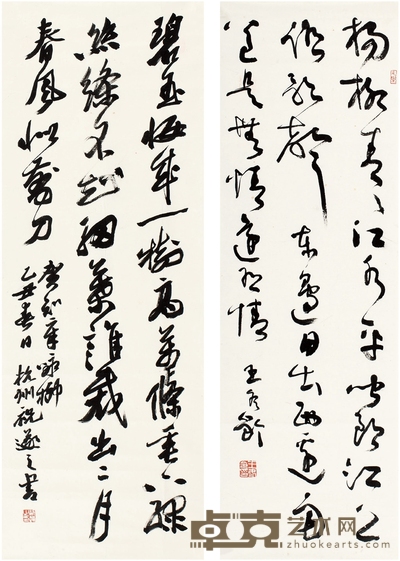 楊柳青〻江水平聞郎江上
唱歌聲東邊日出西邊雨
道是無情還有情
王冬齡
碧玉妝成一樹高萬條垂下綠
絲絛不知細葉誰裁出二月
春風似剪刀
賀知章詠柳
乙丑春日杭州祝遂之書
卓克艺术网
www.zhuokearts.com